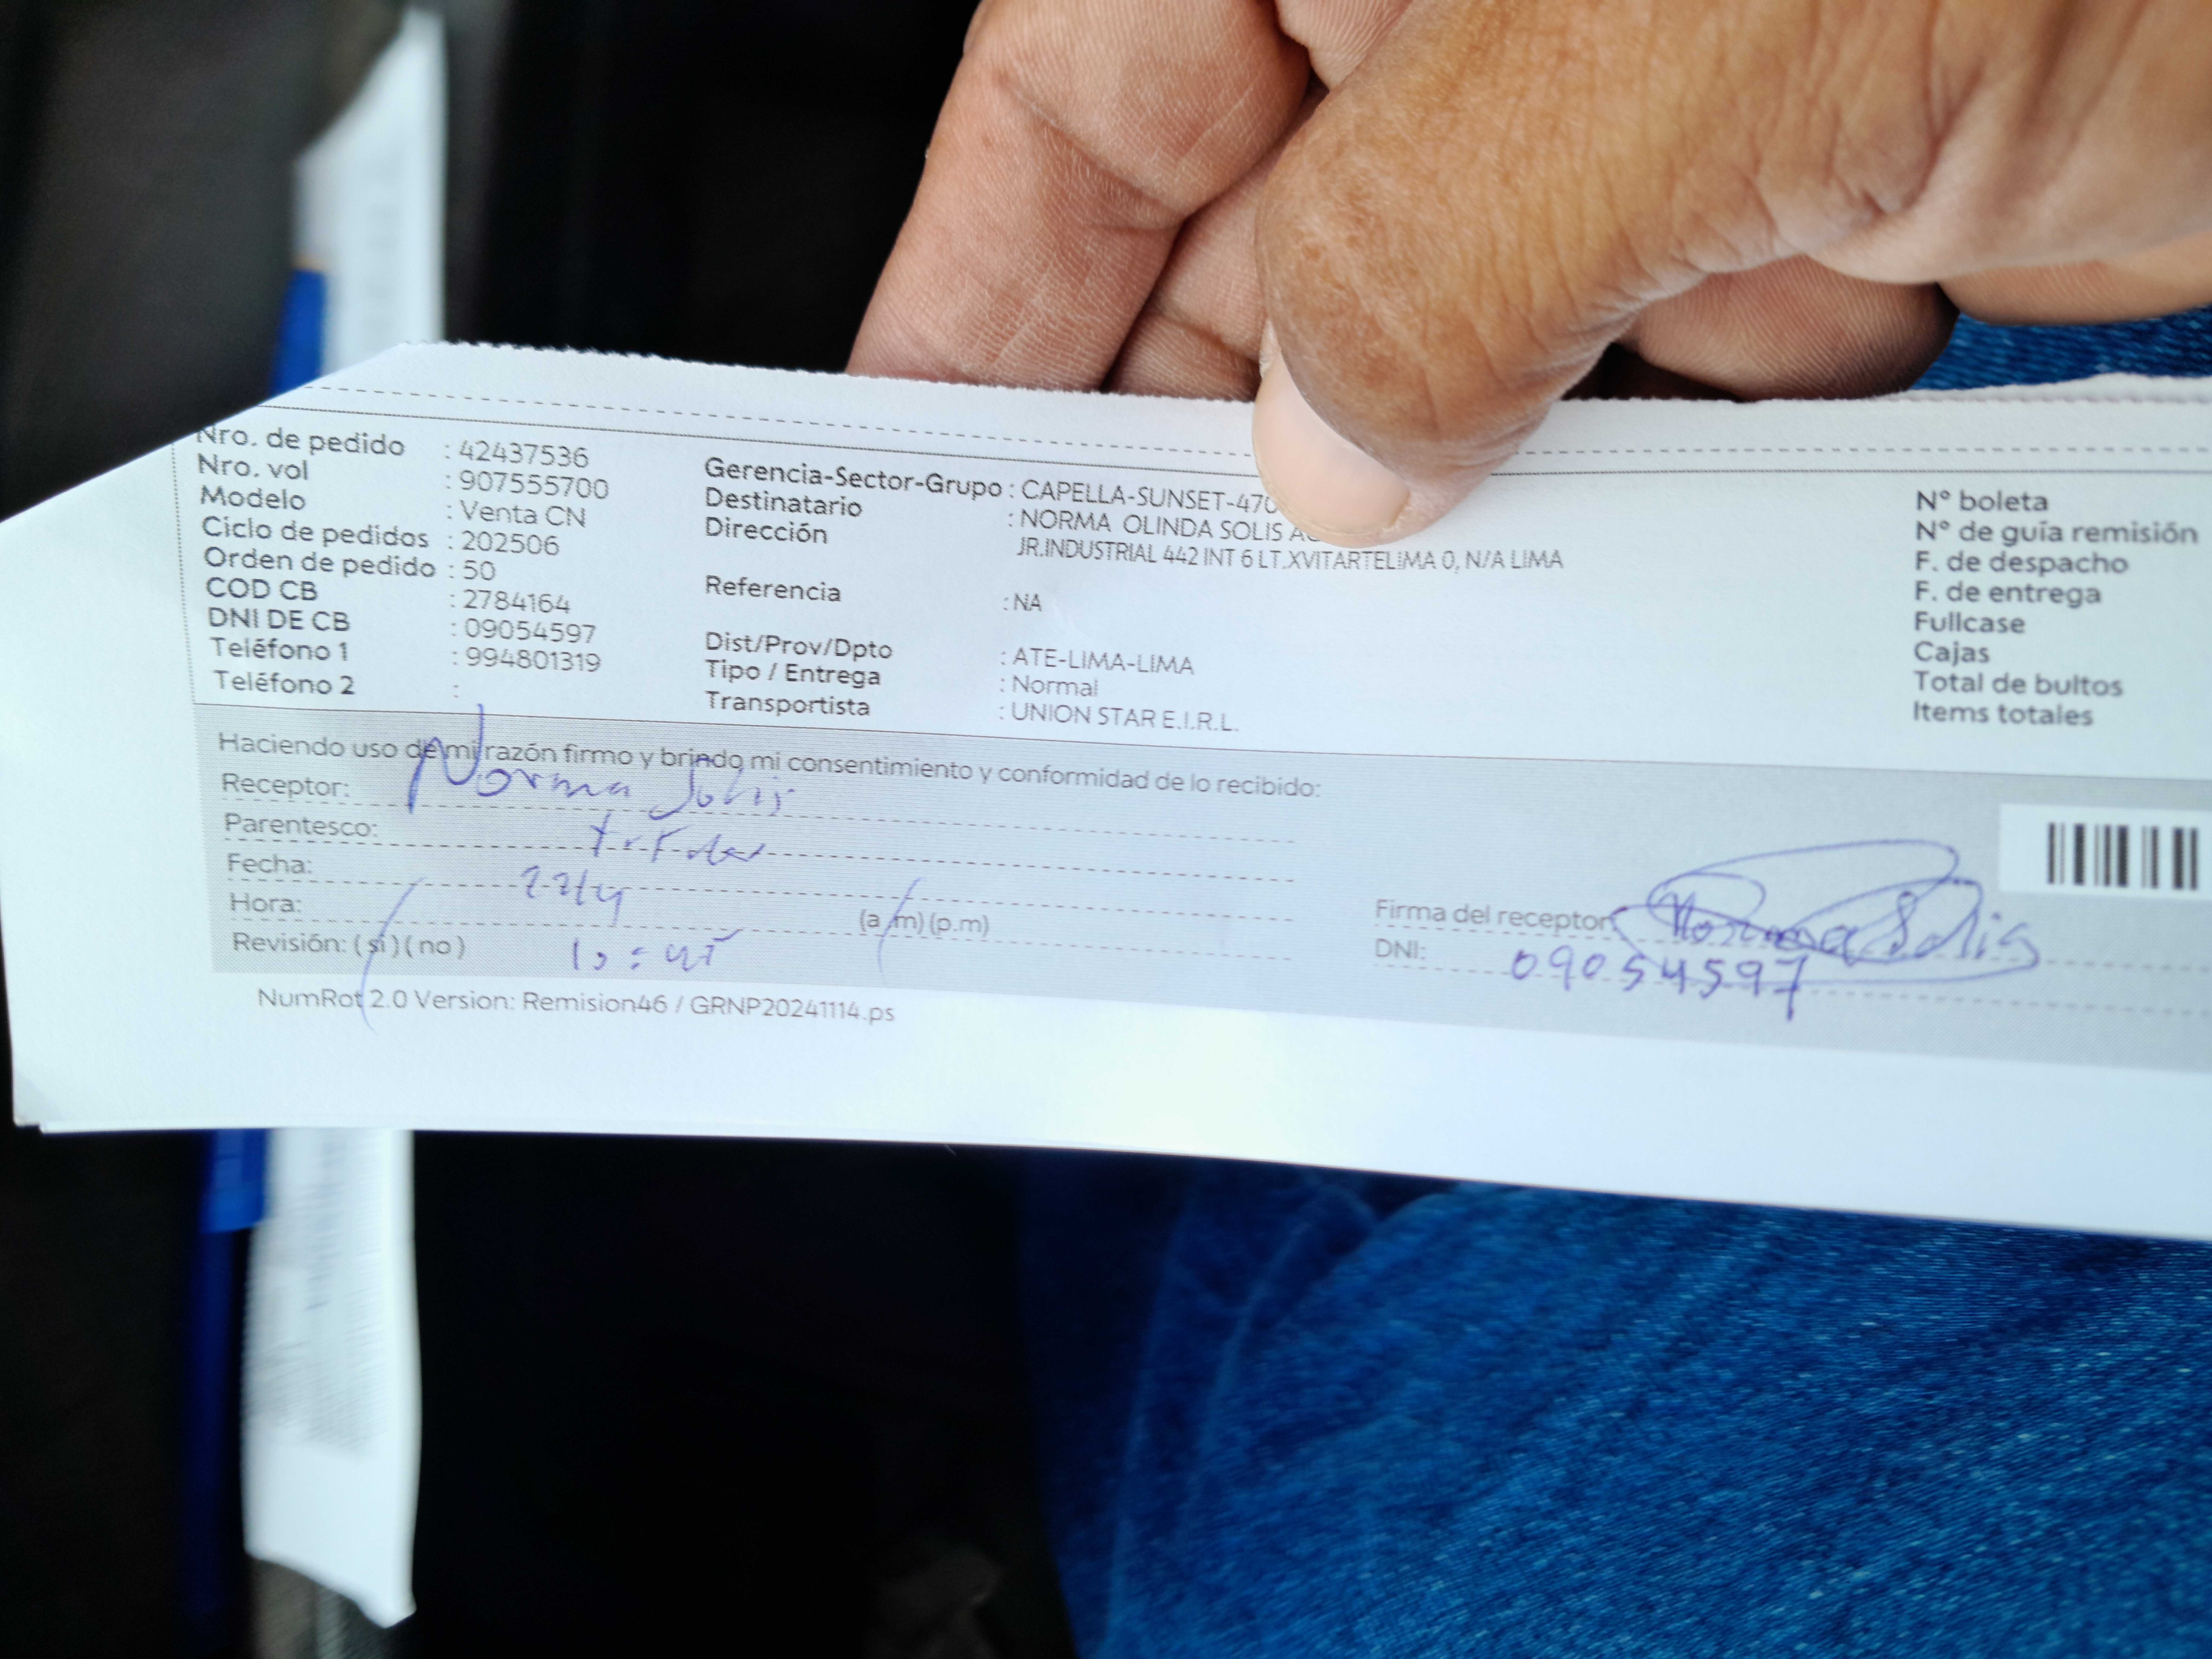 Nro. de pedido : 42437536
Nro. vol : 907555700
Modelo : Venta CN
Ciclo de pedidos : 202506
Orden de pedido : 50
COD CB : 2784164
DNI DE CB : 09054597
Teléfono 1 : 994801319
Teléfono 2 :
Gerencia-Sector-Grupo : CAPELLA-SUNSET-470
Destinatario : NORMA OLINDA SOLIS
Dirección JR.INDUSTRIAL 442 INT 6 LT.XVITARTELIMA 0, N/A LIMA
Referencia : NA
Dist/Prov/Dpto : ATE-LIMA-LIMA
Tipo / Entrega : Normal
Transportista : UNION STAR E.I.R.L.
N° boleta
N° de guía remisión
F. de despacho
F. de entrega
Fullcase
Cajas
Total de bultos
Items totales
Haciendo uso de mi razón firmo y brindo mi consentimiento y conformidad de lo recibido:
Receptor: Norma Solis
Parentesco: titular
Fecha: 22/4
Hora: 10:45 (a.m) (p.m)
Revisión: (si) (no)
Firma del receptor: Norma Solis
DNI: 09054597
NumRot 2.0 Version: Remision46 / GRNP20241114.ps